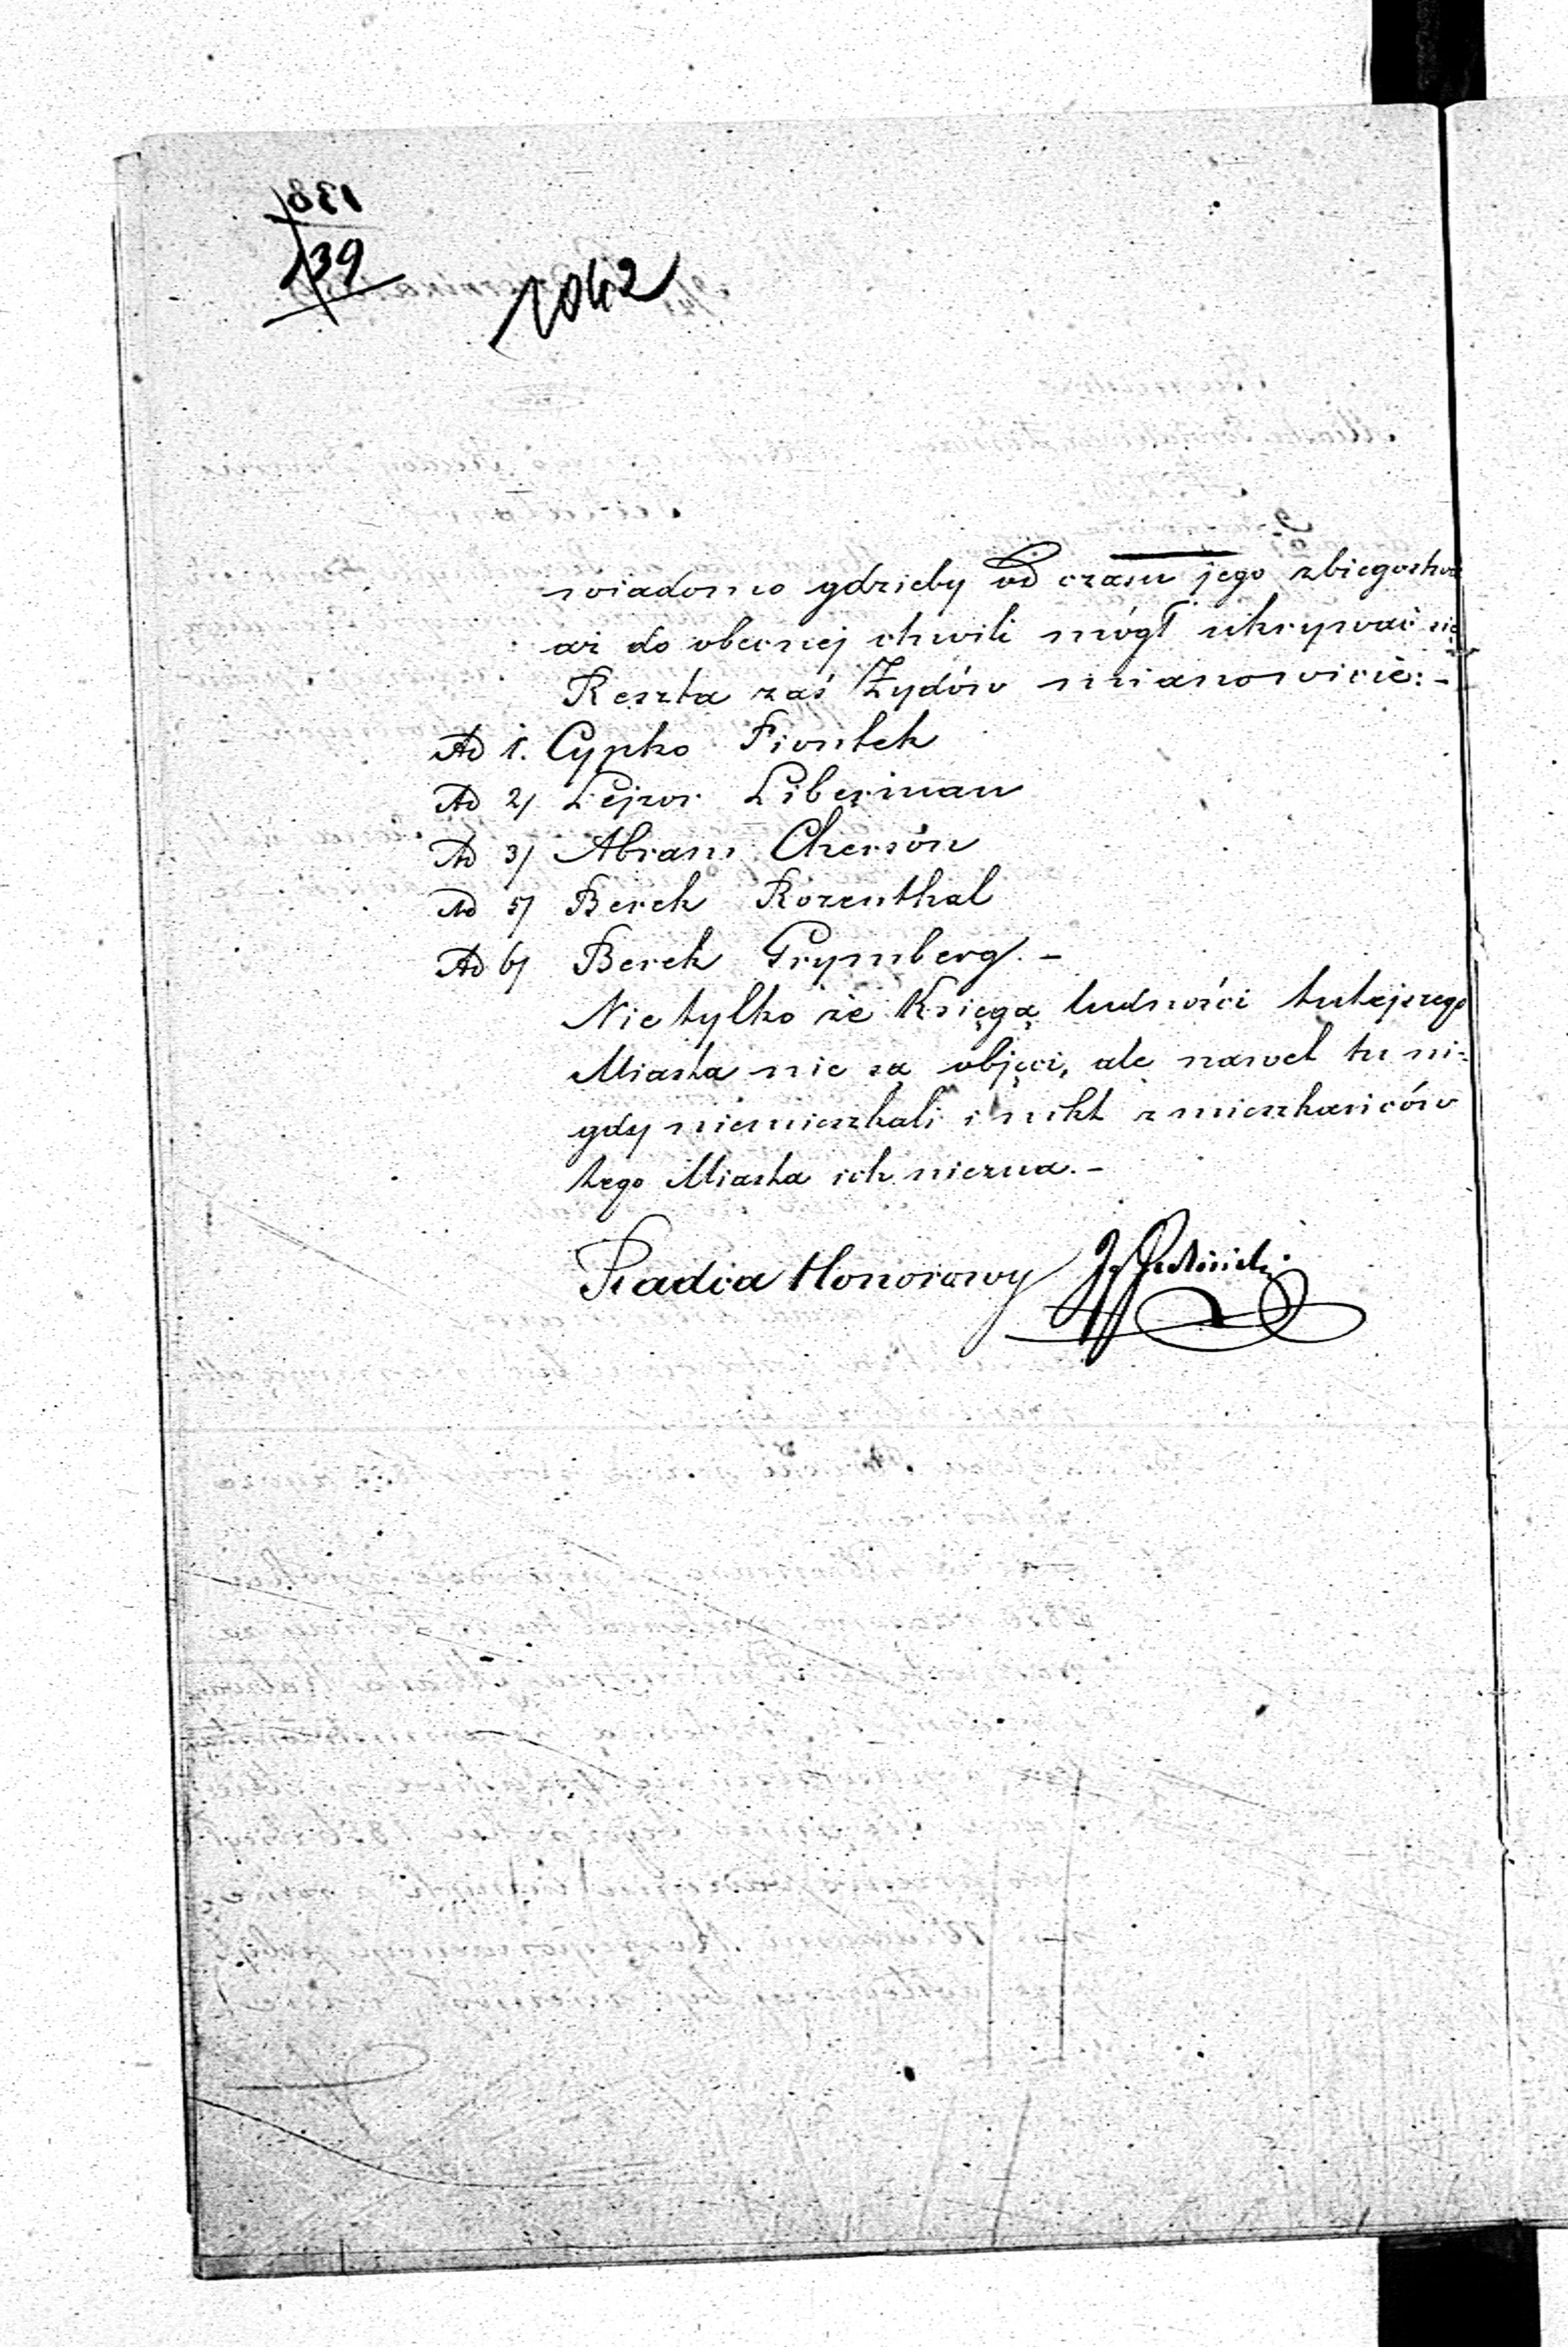 139
1042
wiadomo gdzieby od czasu jego zbiegostwa
aż do obecnej chwili mógł ukrywać się
Reszta zaś Żydów mianowicie:-
Ad 1. Cypko Fiontek
Ad 2) Lejzor Liberman
Ad 3) Abram Cherson
Ad 5) Berek Rozenthal
Ad 6) Berek Grymberg.-
Nie tylko że Księgą ludności tutejszego
Miasta nie są objęci, ale nawet tu ni=
gdy niemieszkali i nikt z mieszkańców
tego Miasta ich niezna.-
Radca Honorowy